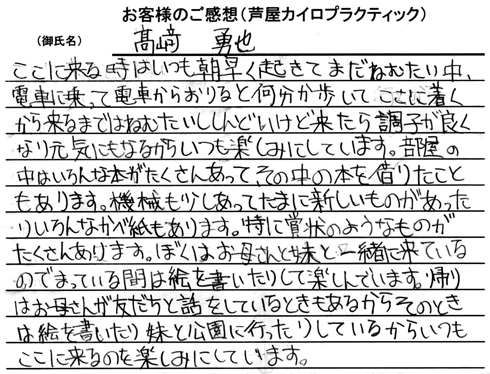 お客様のご感想(芦屋カイロプラクティック)
(御氏名) 髙﨑 勇也
ここに来る時はいつも朝早く起きてまだねむたい中、
電車に乗って電車からおりると何分か歩いてここに着く
から来るまではねむたいししんどいけど来たら調子が良く
なり元気にもなるからいつも楽しみにしています。部屋の
中はいろんな本がたくさんあって、その中の本を借りたこと
もあります。機械も少しあってたまに新しいものがあった
りいろんなかべ紙もあります。特に賞状のようなものが
たくさんあります。ぼくはお母さんと妹と一緒に来ている
のでまっている間は絵を書いたりして楽しんでいます。帰り
はお母さんが友だちと話をしているときもあるからそのとき
は絵を書いたり妹と公園に行ったりしているからいつも
ここに来るのを楽しみにしています。